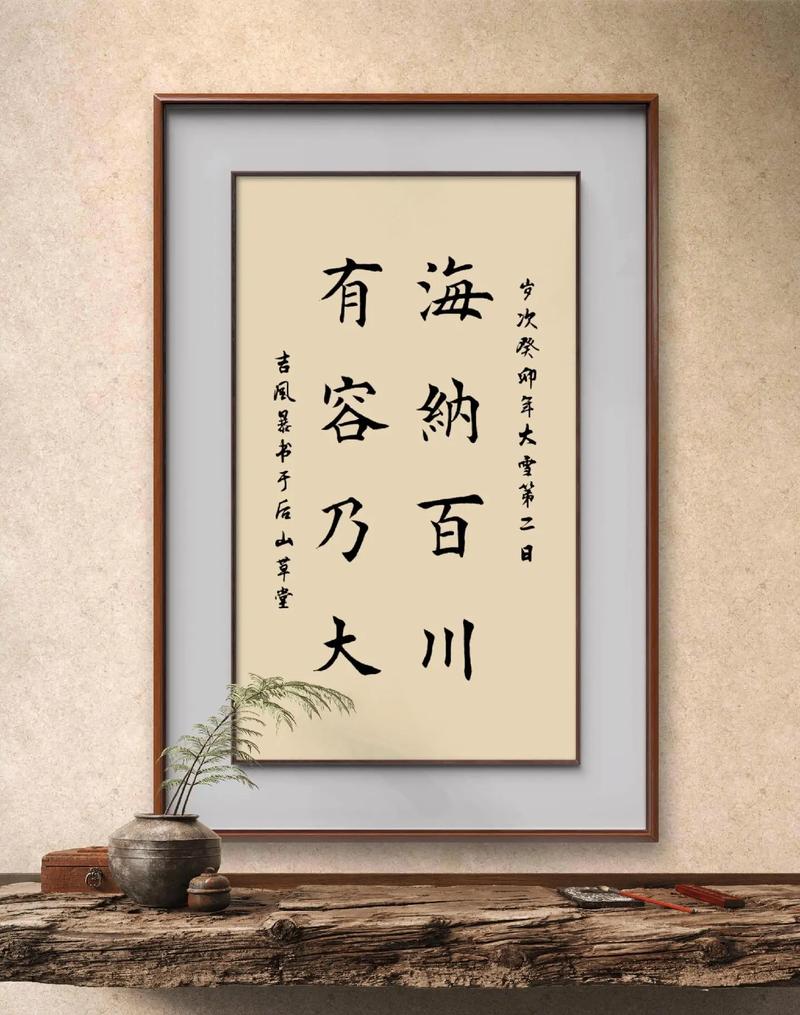 岁次癸卯年大雪第二日
海納百川
有容乃大
吉風暴书于后山草堂